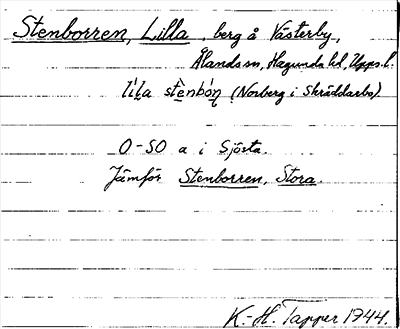 Stenborren, Lilla, berg å Västerby,
Ålands sn, Hagunda hd, Upps. l.
(Norberg i Skräddarbo)
O-SO a i Sjösta.
Jämför Stenborren, Stora.
K.-H. Tapper 1944.